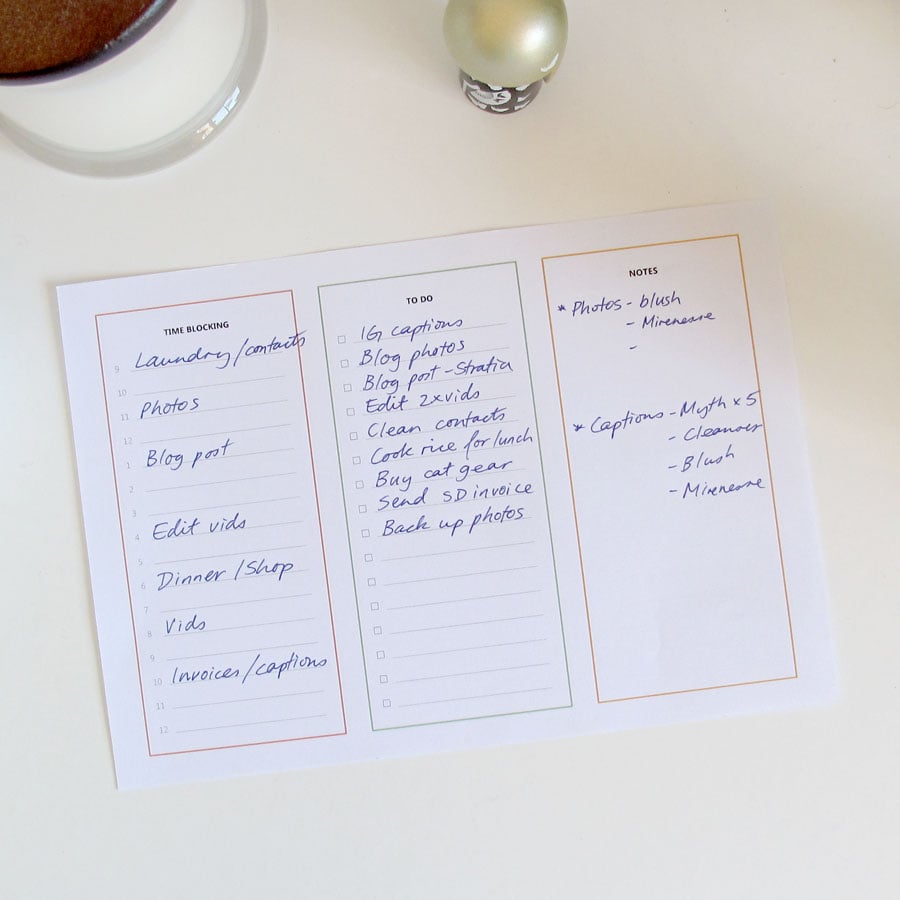 TIME BLOCKING
9 Laundry/contacts
10
11 Photos
12
1 Blog post
2
3
4 Edit vids
5
6 Dinner/Shop
7
8 Vids
9
10 Invoices/captions
11
12
TO DO
IG captions
Blog photos
Blog post - Stratia
Edit 2x vids
Clean contacts
Cook rice for lunch
Buy cat gear
Send SD invoice
Back up photos
NOTES
* Photos - blush
- Mirenesse
-
* Captions - Myth x 5
- Cleanser
- Blush
- Mirenesse